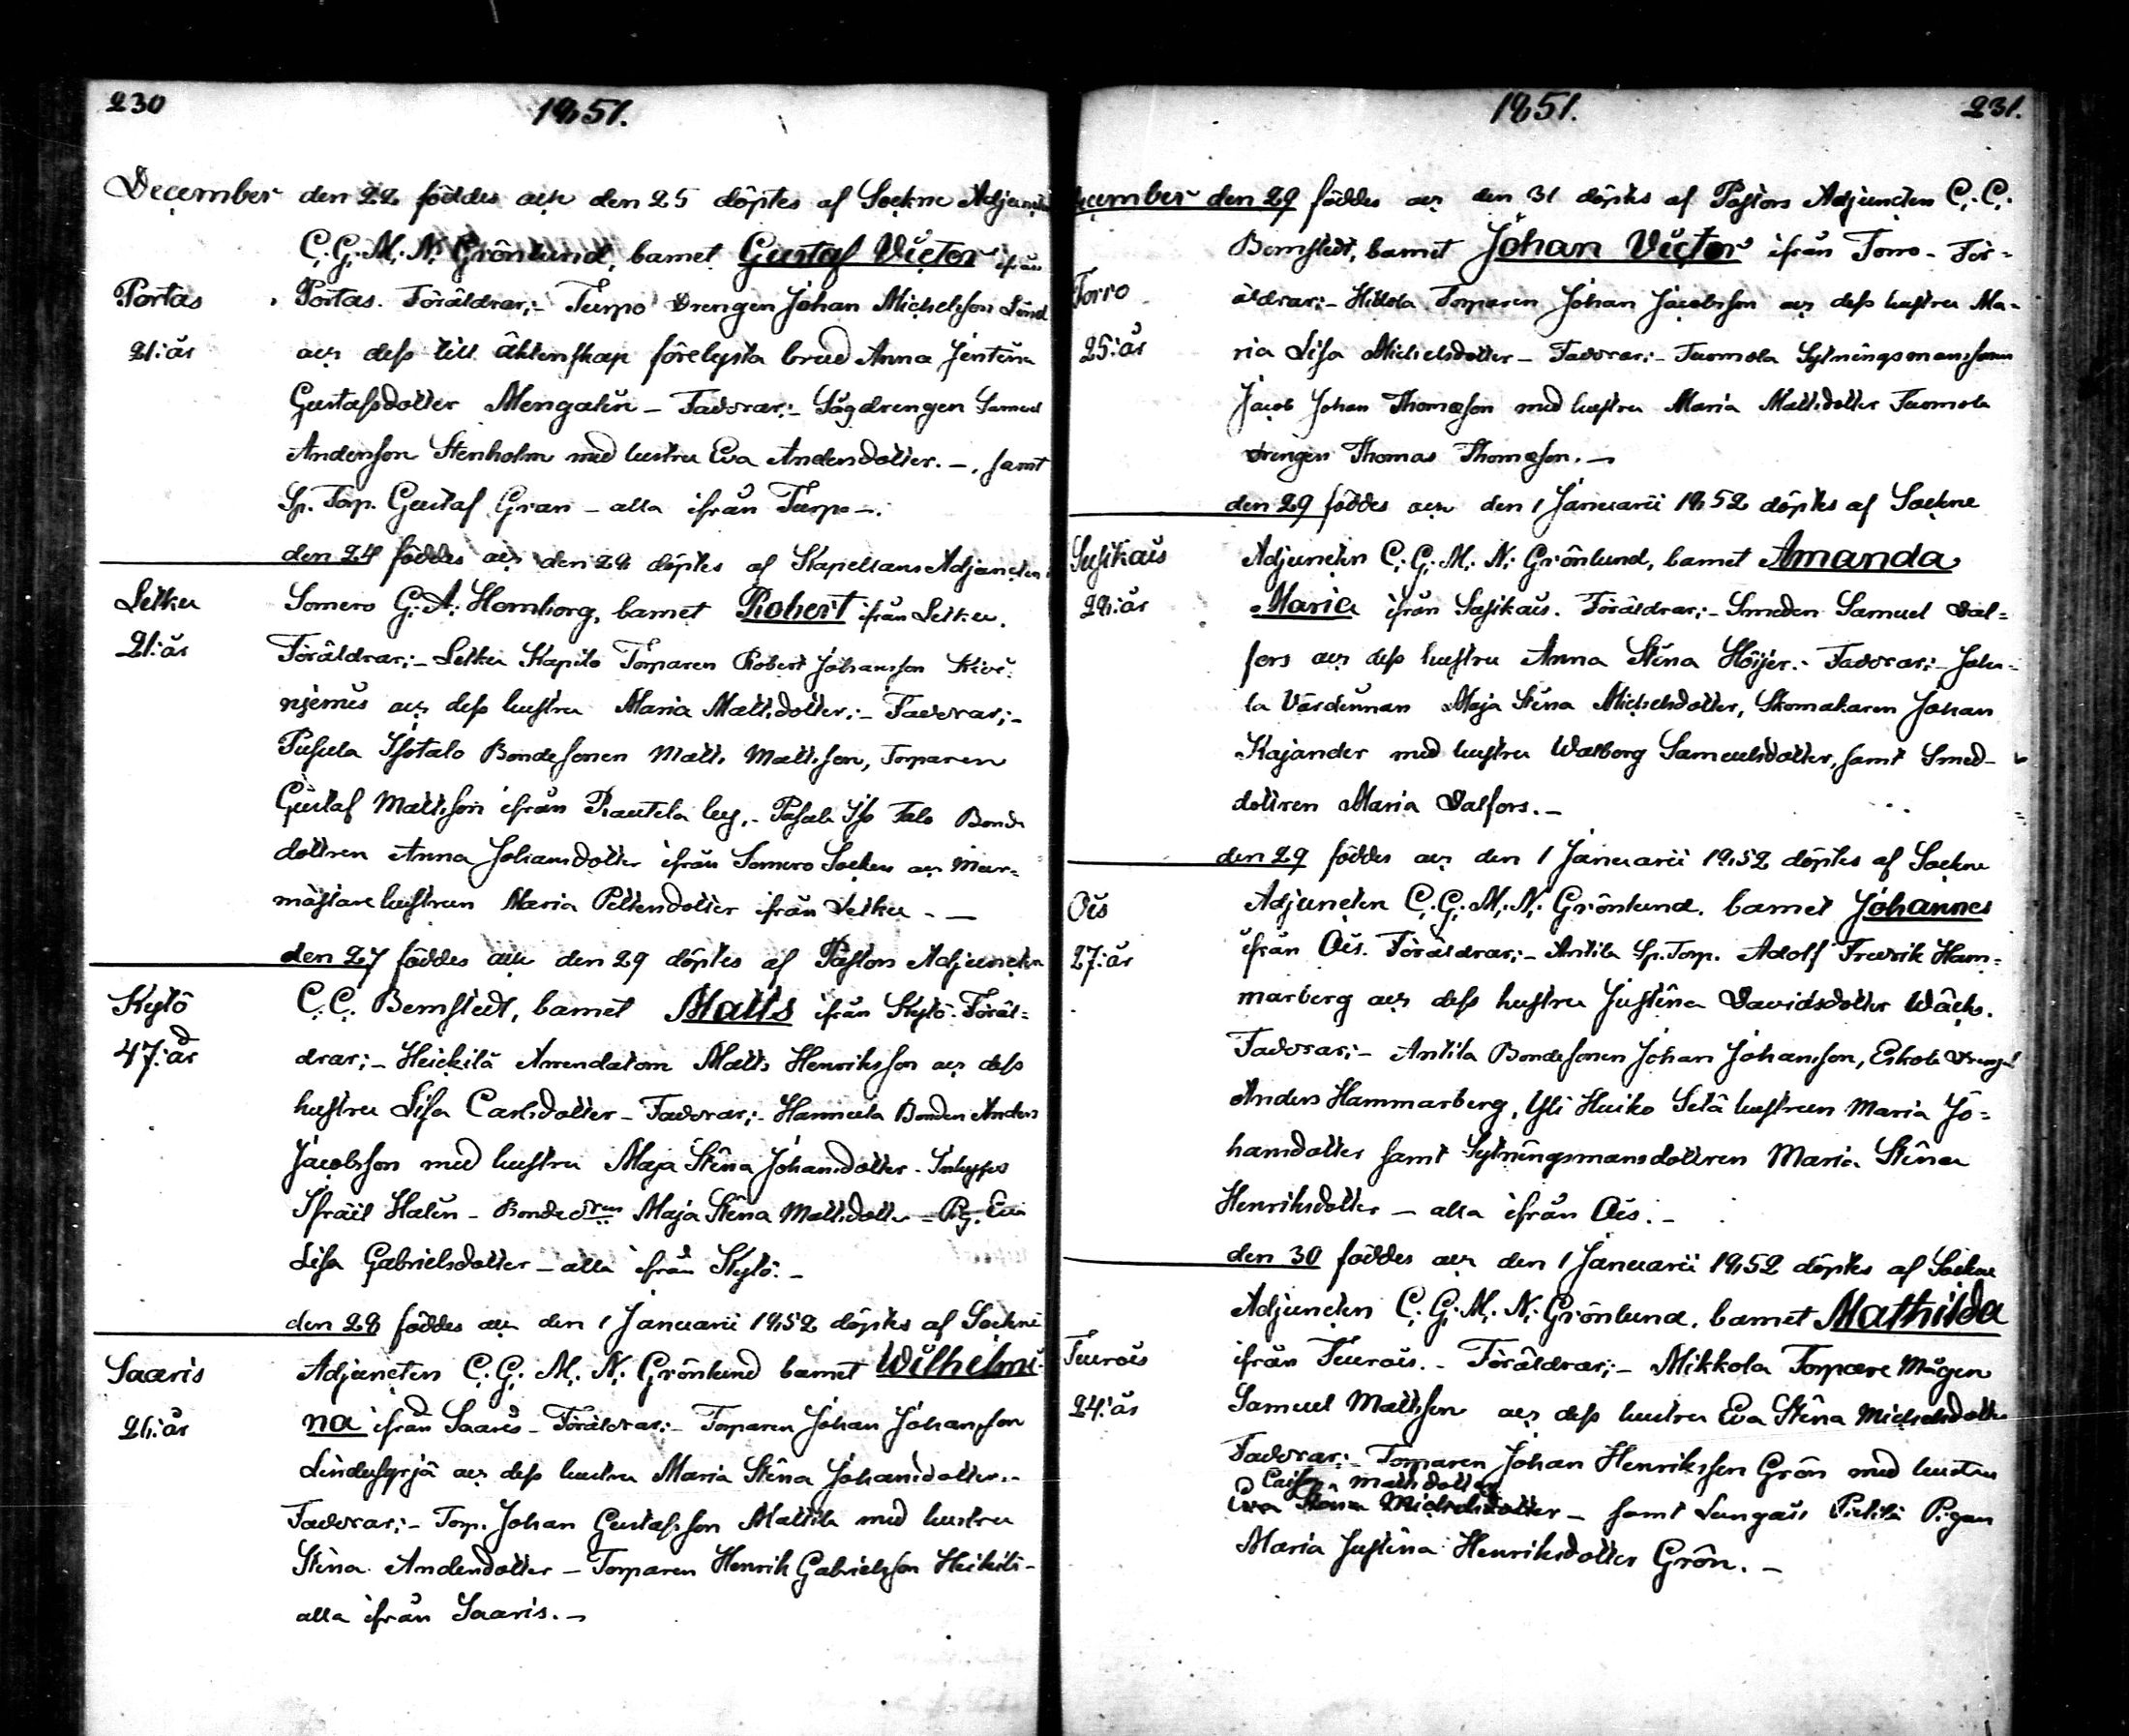 230
1851.
December den 22 föddes och den 25 döptes af Sockne Adjunct
C. G. M. N. Grönlund, barnet Gustaf Victor ifrån
Portas Portas. Föräldrar;- Turpo Drengen Johan Michelsson Lind
21: år och dess till äktenskap förelysta brud Anna Justina
Gustafsdotter Mengalin - Faddrar;- Sågdrengen Samuel
Andersson Stenholm med hustru Eva Andersdotter. -, samt
Sp. Torp. Gustaf Gran - alla ifrån Turpo -.
den 24 föddes och den 28 döptes af Kapellans Adjuncten i
Letku Somero G. A. Homborg, barnet Robert ifrån Letku.
21: år Föräldrar;- Letku Kapilo Torparen Robert Johansson Kivi-
njemis och dess hustru Maria Mattsdotter;- Faddrar;-
Pusula Isotalo Bondesonen Matts Mattsson, Torparen
Gustaf Mattsson ifrån Rautela by,- Pusula Iso Talo Bonde
dottren Anna Johansdotter ifrån Somero Socken och Mur-
mästare hustrun Maria Pettersdotter ifrån Letku - -
den 27 föddes och den 29 döptes af Pastors Adjuncten
Kylö C. C. Bernstedt, barnet Matts ifrån Kylö. Föräl-
47: år drar;- Heickilä Arrendatorn Matts Henriksson och dess
hustru Lisa Carlsdotter - Faddrar;- Hannula Bonden Anders
Jacobsson med hustru Maja Stina Johansdotter - Inhyses
Israël Halin - Bonded:ren Maja Stina Mattsdotter - Pig. Eva
Lisa Gabrielsdotter - alla ifrån Kylö. -
den 28 föddes och den 1 Januarii 1852 döptes af Sockne
Saaris Adjuncten C. G. M. N. Grönlund barnet Wilhelmi-
26: år na ifrån Saaris - Föräldrar;- Torparen Johan Johansson
och dess hustru Maria Stina Johansdotter.-
Faddrar;- Torp. Johan Gustafsson Mattila med hustru
Stina Andersdotter - Torparen Henrik Gabrielsson Heikilä -
alla ifrån Saaris. -
1851.
231.
December den 29 föddes och den 31 döptes af Pastors Adjuncten C. C.
Bernstedt, barnet Johan Victor ifrån Torro - För-
Torro äldrar;- Hittola Torparen Johan Jacobsson och dess hustru Ma-
25: år ria Lisa Michelsdotter - Faddrar;- Tuomola Sytningsmanssonen
Jacob Johan Thomasson med hustru Maria Mattsdotter Tuomola
drengen Thomas Thomasson. -
den 29 föddes och den 1 Januarii 1852 döptes af Sockne
Susikais Adjuncten C. G. M. N. Grönlund, barnet Amanda
28: år Maria ifrån Susikais. Föräldrar;- Smeden Samuel Dal-
fors och dess hustru Anna Stina Höijer.- Faddrar;- Joku-
la Värdinnan Maja Stina Michelsdotter, Skomakaren Johan
Kajander med hustru Walborg Samuelsdotter, samt Smed-
dottren Maria Dalfors. -
den 29 föddes och den 1 Januarii 1852 döptes af Sockne
Ois Adjuncten C. G. M. N. Grönlund. barnet Johannes
27: år ifrån Ois. Föräldrar;- Antila Sp. Torp. Adolf Fredrik Ham-
marberg och dess hustru Justina Davidsdotter Wäck.
Faddrar;- Antila Bondesonen Johan Johansson, Eskola Drengen
Anders Hammarberg, Yli Huiko Setä hustrun Maria Jo-
hansdotter samt Sytningsmansdottren Maria Stina
Henriksdotter - alla ifrån Ois. -
den 30 föddes och den 1 Januarii 1852 döptes af Sockne
Adjuncten C. G. M. N. Grönlund. barnet Mathilda
Turois ifrån Turois. - Föräldrar;- Mikkola Torpare Mågen
24: år Samuel Mattsson och dess hustru Eva Stina Michelsdotter
Faddrar;- Torparen Johan Henriksson Grön med hustru
Caisa Mattsdotter
Eva Stina Michelsdotter - samt Lungais Pietilä Pigan
Maria Justina Henriksdotter Grön. -